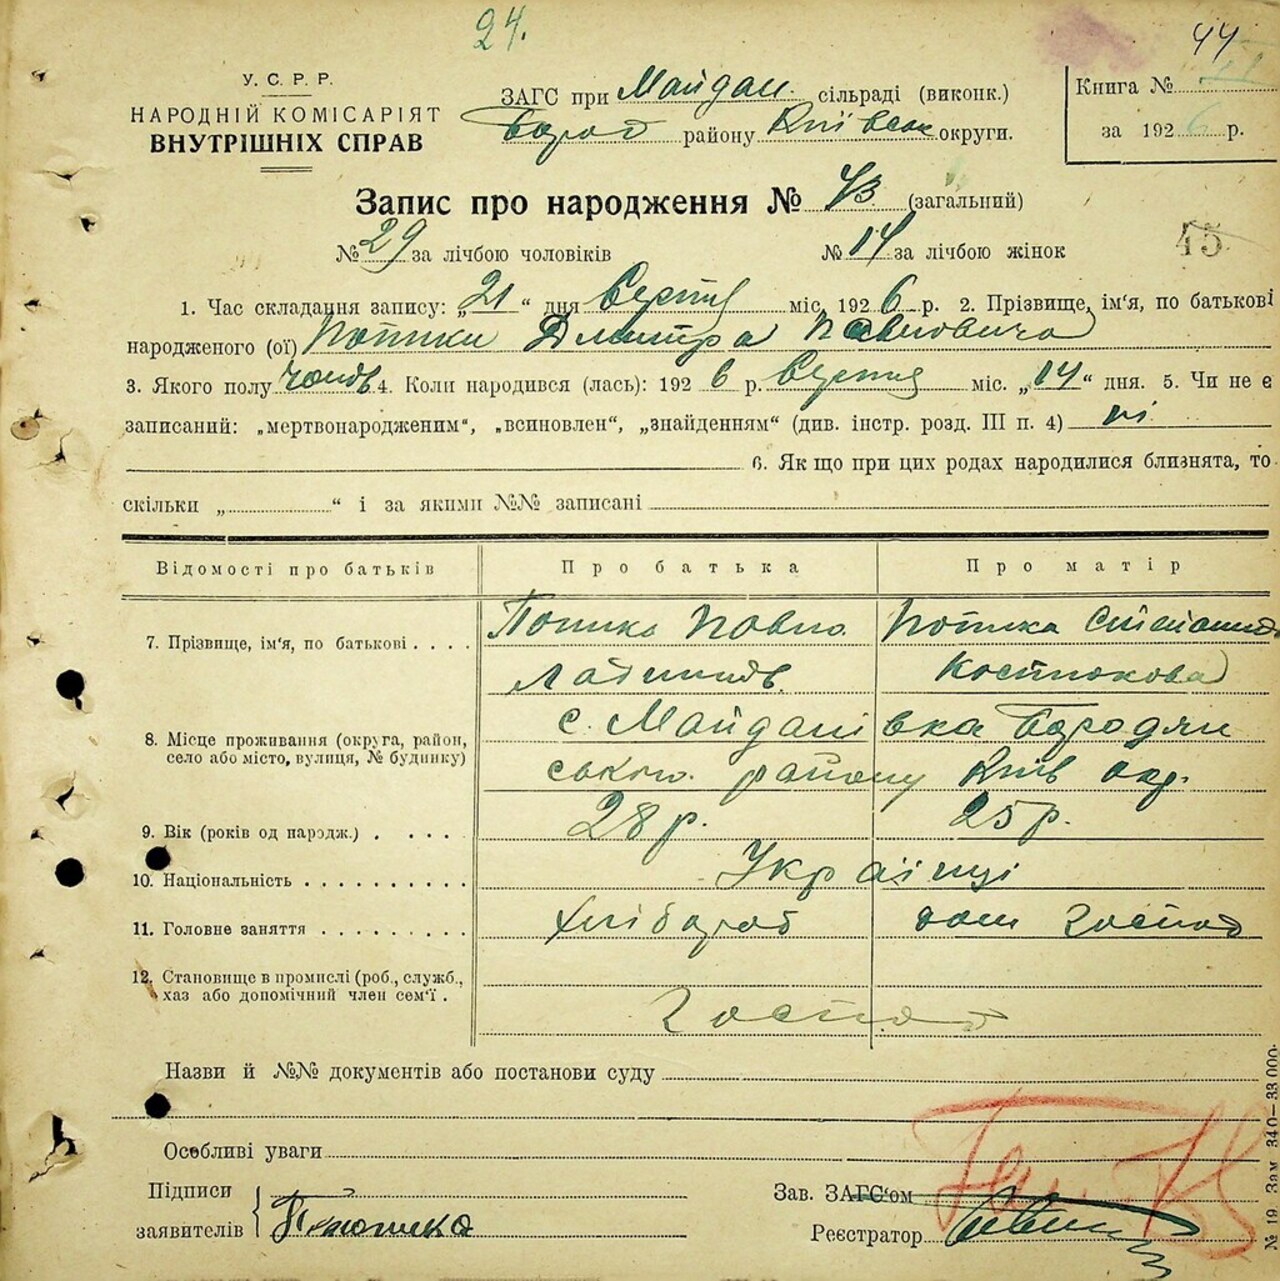 24.
44
У. С. Р. Р.
НАРОДНІЙ КОМІСАРІЯТ
ВНУТРІШНІХ СПРАВ
ЗАГС при Майдан. сільраді (виконк.)
Бород районy Київськ округи.
Книга №
за 1926 р.
Запис про народження № 43 (загальний)
№ 29 за лічбою чоловіків № 14 за лічбою жінок
45
1. Час складання запису: „21“ дня Серпня міс. 1926 р. 2. Прізвище, ім'я, по батькові
народженого (ої) Потики Дмитра Павловича
3. Якого полу чолов. 4. Коли народився (лась): 1926 р. Серпня міс. „14“ дня. 5. Чи не є
записаний: „мертвонародженим“, „всиновлен“, „знайденням“ (див. інстр. розд. III п. 4) ні.
6. Як що при цих родах народилися близнята, то
скільки „ “ і за якими №№ записані
Відомості про батьків Про батька Про матір
7. Прізвище, ім'я, по батькові . . . . Потика Павло Потика
Костюкова
8. Місце проживання (округа, район, с. Майданівка Бородян
село або місто, вулиця, № будинку) ського району Київ окр.
9. Вік (років од народж.) . . . . 28 р. 25 р.
10. Національність . . . . . . . . . . Українці
11. Головне заняття . . . . . . . . . Хлібороб дом господ
12. Становище в промислі (роб., служб.,
хаз або допомічний член сем'ї . Господ
Назви й №№ документів або постанови суду
Особливі уваги
Підписи
заявителів Потика
Зав. ЗАГС'ом
Реєстратор
№ 19. Зам 340—33.000.